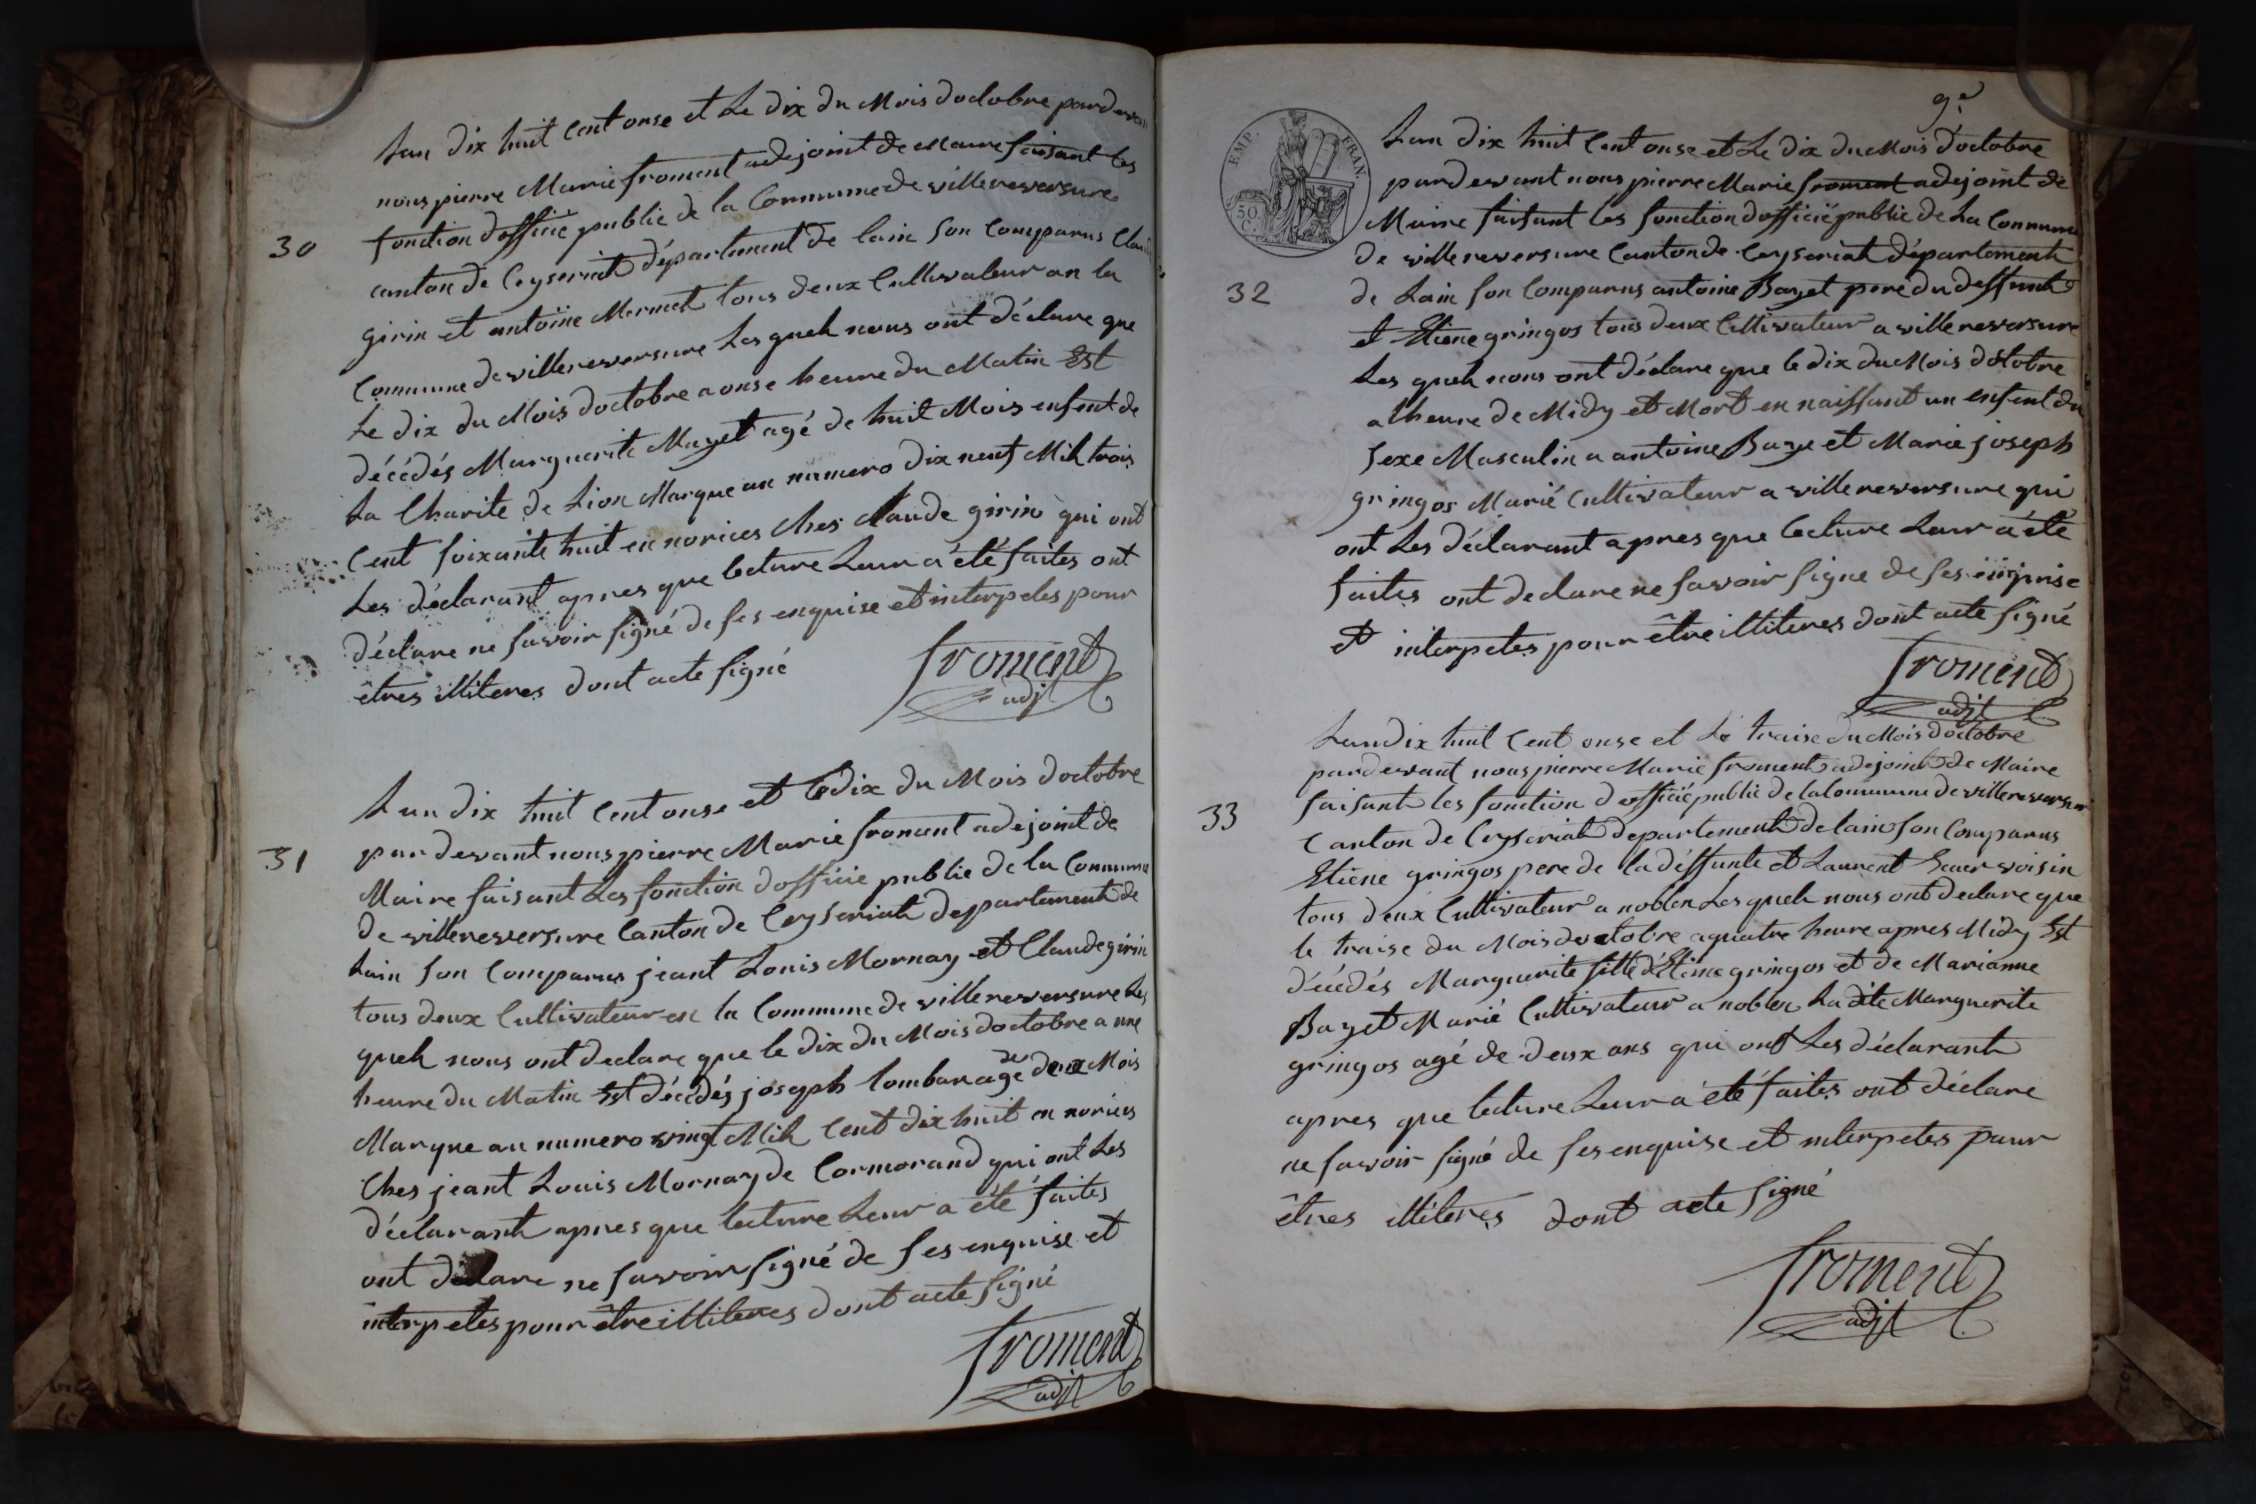 Lan dix huit Cent onse et Le dix du Mois doctobre pardevant
nous pierre Marie froment adejoint de Maire faisant les
fonction dofficié public de la Commune de villereversure
30
canton de Ceyseriat département de lain son Comparus Claude
girin et antoine Mermet tous deux Cultivateur an la
Commune de villereversure Les quels nous ont déclare que
Le dix du Mois doctobre a onse heure du Matin Est
décédés Marguerite Mayet agé de huit Mois enfent de
La Charite de Lion Marque au numero dix neuf Mil trois
Cent soixante huit en norices Ches Claude girin qui ont
Les déclarant apres que lecture Leur a été faites ont
déclare ne savoir signé de ses enquise et interpeles pour
êtres illiteres dont acte signé
froment
adjt
Lan dix huit Cent onse et Le dix du Mois doctobre
par devant nous pierre Marie froment adejoint de
31
Maire faisant Les fonction dofficié public de la Commune
de villereversure Canton de Ceyseriat departement de
Lain son Comparus jeant Louis Mornay et Claude girin
tous deux Cultivateur en la Commune de villereversure Les
quels nous ont declare que le dix du Mois doctobre a une
heure du Matin Est décédés joseph lombar agé de deux Mois
Marque au numero vingt Mil Cent dix huit en norices
Ches jeant Louis Mornay de Cormorand qui ont Les
déclarant apres que lecture Leur a été faites
ont déclare ne savoir signé de ses enquise et
interpetes pour être illiteres dont acte signé
froment
adjt
9e
EMP. FRAN.
50 C.
Lan dix huit Cent onse et Le dix du Mois doctobre
pardevant nous pierre Marie froment adejoint de
Maire faisant Les fonction dofficié public de La Commune
de villereversure Canton de Ceyseriat département
32
de Lain son Comparus antoine Bayet pere du deffunt
et Etiene gringos tous deux Cultivateur a villereversure
Les quels nous ont déclare que le dix du Mois doctobre
a lheure de Midy et Mort en naissant un enfent du
sexe Masculin a antoine Baye et Marie joseph
gringos Marié Cultivateur a villereversure qui
ont Les déclarant apres que lecture Leur a été
faites ont declare ne savoir signe de ses enquise
et interpetes pour être illiteres dont acte signé
froment
adjt
Lan dix huit Cent onse et Le traise du Mois doctobre
pardevant nous pierre Marie froment adejoint de Maire
faisant les fonction dofficié public de la Commune de villereversure
33
Canton de Ceyseriat departement de lain son Comparus
Etiene gringos pere de la déffunte et Laurent voisin
tous deux Cultivateur a noblen Les quels nous ont declare que
le traise du Mois doctobre a quatre heure apres Midy Est
décédés Marguerite fille d'Etiene gringos et de Marianne
Bayet Marié Cultivateur a noblen La dite Marguerite
gringos agé de deux ans qui ont Les déclarant
apres que lecture Leur a été faites ont déclare
ne savoir signé de ses enquise et interpetes pour
êtres illiteres dont acte signé
froment
adjt